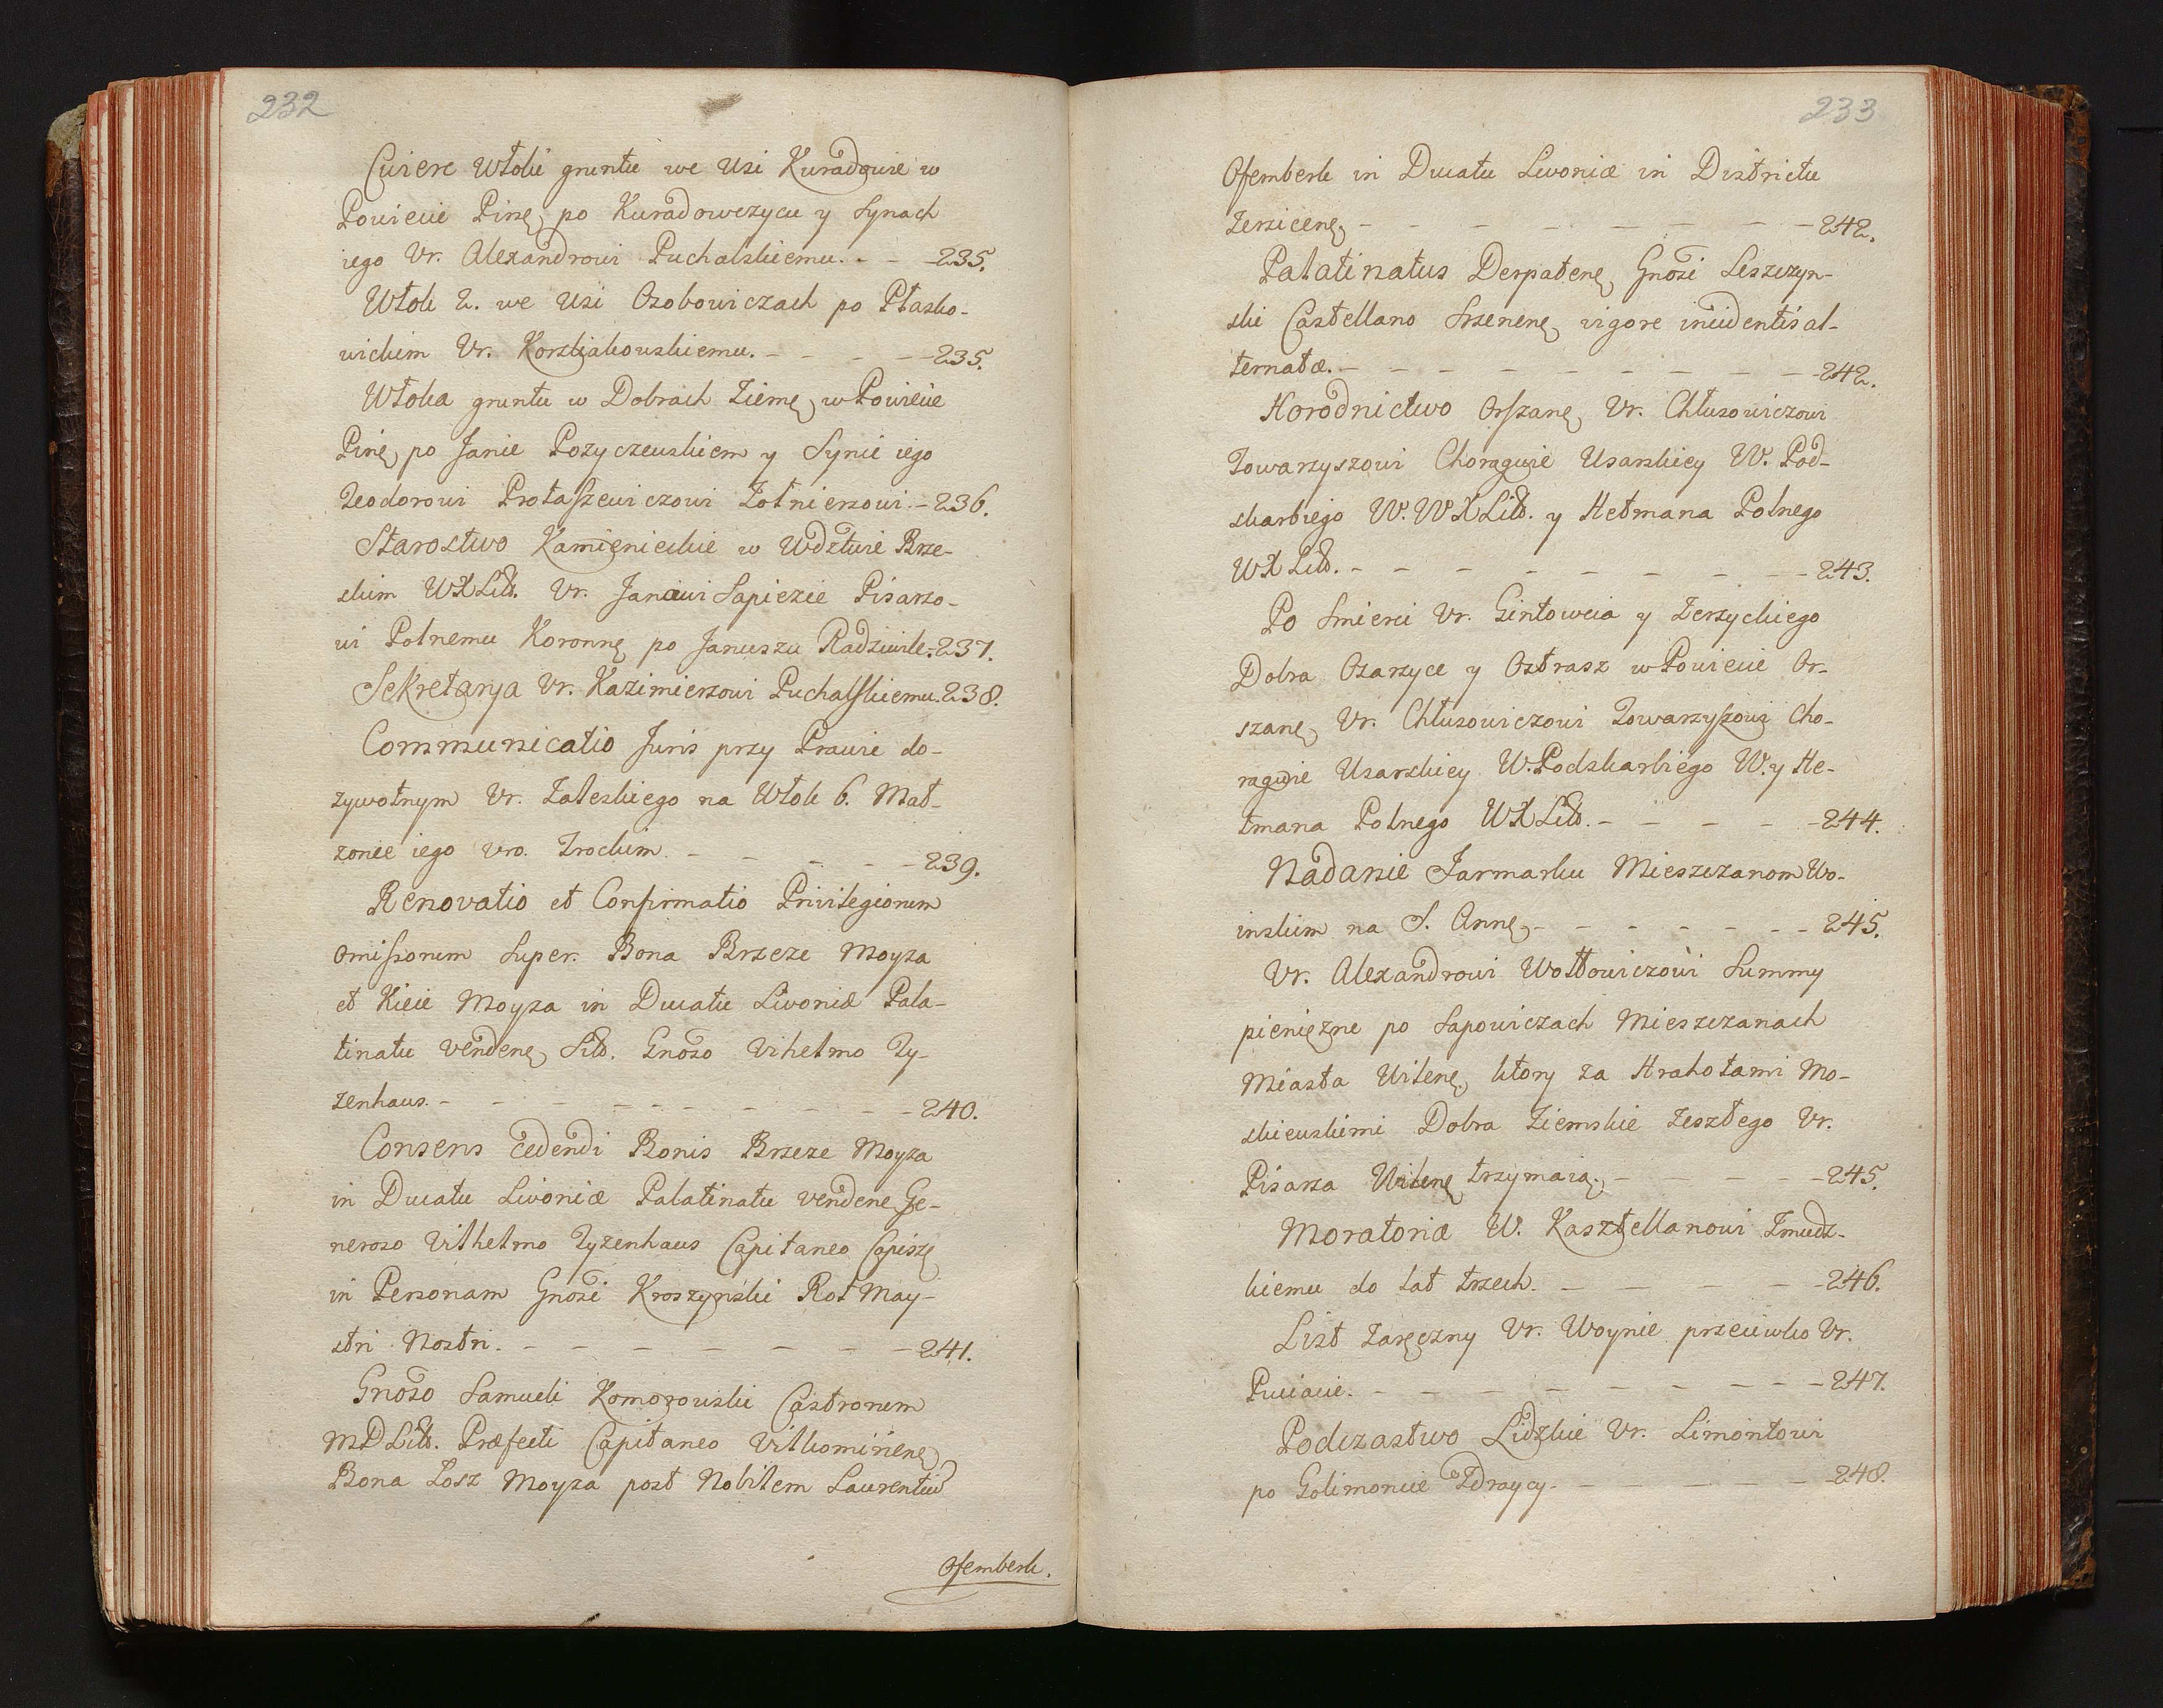 232
Cwierć Włoki gruntu we Wsi Kuradowie w
Powiecie Pinę. po Kuradowczycu y Synach
iego Ur. Alexandrowi Puchalskiemu. - - 235.
Włok 2. we Wsi Osobowiczach po Płasko-
wickim Ur. Korsakowskiemu. - - - - 235.
Włoka gruntu w Dobrach Ziemę. w Powiecie
Pinę. po Janie Pożyczewskiem y Synie iego
Teodorowi Protaszewiczowi Żołnierzowi. - 236.
Starostwo Kamienieckie w Wdztwie Brze-
skim WXLitt. Ur. Janowi Sapiezie Pisarzo-
wi Polnemu Koronnę. po Januszu Radziwile. 237.
Sekretarya Ur. Kazimierzowi Puchalskiemu. 238.
Communicatio Juris przy Prawie do-
żywotnym Ur. Zaleskiego na Włok 6. Mał-
zonce iego Uro. Trockim. - - - - - 239.
Renovatio et Confirmatio Privilegiorum
omissorum Super. Bona Brzeze Moyza
et Kieie Moyza in Ducatu Livoniæ Pala-
tinatu Vendenę. Sitt. Gnoso Vihelmo Ty-
zenhaus. - - - - - - - - - - 240.
Consens cedendi Bonis Brzeze Moyza
in Ducatu Livoniæ Palatinatu Vendenę. Ge-
neroso Vilhelmo Tyzenhaus Capitaneo Capiszę.
in Personam Gnosi Kroszynski Rot May-
stri Nostri. - - - - - - - 241.
Gnoso Samueli Komorowski Castrorum
MDLitt. Præfecti Capitaneo Vilkominenę.
Bona Łosz Moyza post Nobilem Laurentiu
Ofemberk.
233
Ofemberk in Ducatu Livoniæ in Districtu
Zerzicenę. - - - - - - - - 242.
Palatinatus Derpatenę. Gnosi Leszczyn-
ski Castellano Srzenenę. vigore incidentis al-
ternatæ. - - - - - - - - 242.
Horodnictwo Orszanę. Ur. Chłusowiczowi
Towarzyszowi Chorągwie Usarskiey W. Pod-
skarbiego W. WXLitt. y Hetmana Polnego
WXLitt. - - - - - - - - 243.
Po Smierci Ur. Gintowcia y Zerzyckiego
Dobra Ozarzyce y Ostrasz w Powiecie Or-
szanę. Ur. Chłusowiczowi Towarzyszowi Cho-
rągwie Usarskiey W. Podskarbiego W. y He-
tmana Polnego WXLitt. - - - - - 244.
Nadanie Jarmarku Mieszczanom Wo-
inskim na S. Annę. - - - - - - - 245.
Ur. Alexandrowi Wołłowiczowi Summy
pieniężne po Sapowiczach Mieszczanach
Miasta Wilenę. ktory za Hrahotami Mo-
skiewskimi Dobra Ziemskie Zeszłego Ur.
Pisarza Wilenę. trzymaią. - - - - - 245.
Moratoriæ W. Kasztellanowi Zmudz-
kiemu do lat trzech. - - - - - 246.
List Zaręczny Ur. Woynie przeciwko Ur.
Puciacie. - - - - - - - - - 247.
Podczastwo Lidzkie Ur. Limontowi
po Golimoncie Zdraycy. - - - - - 248.